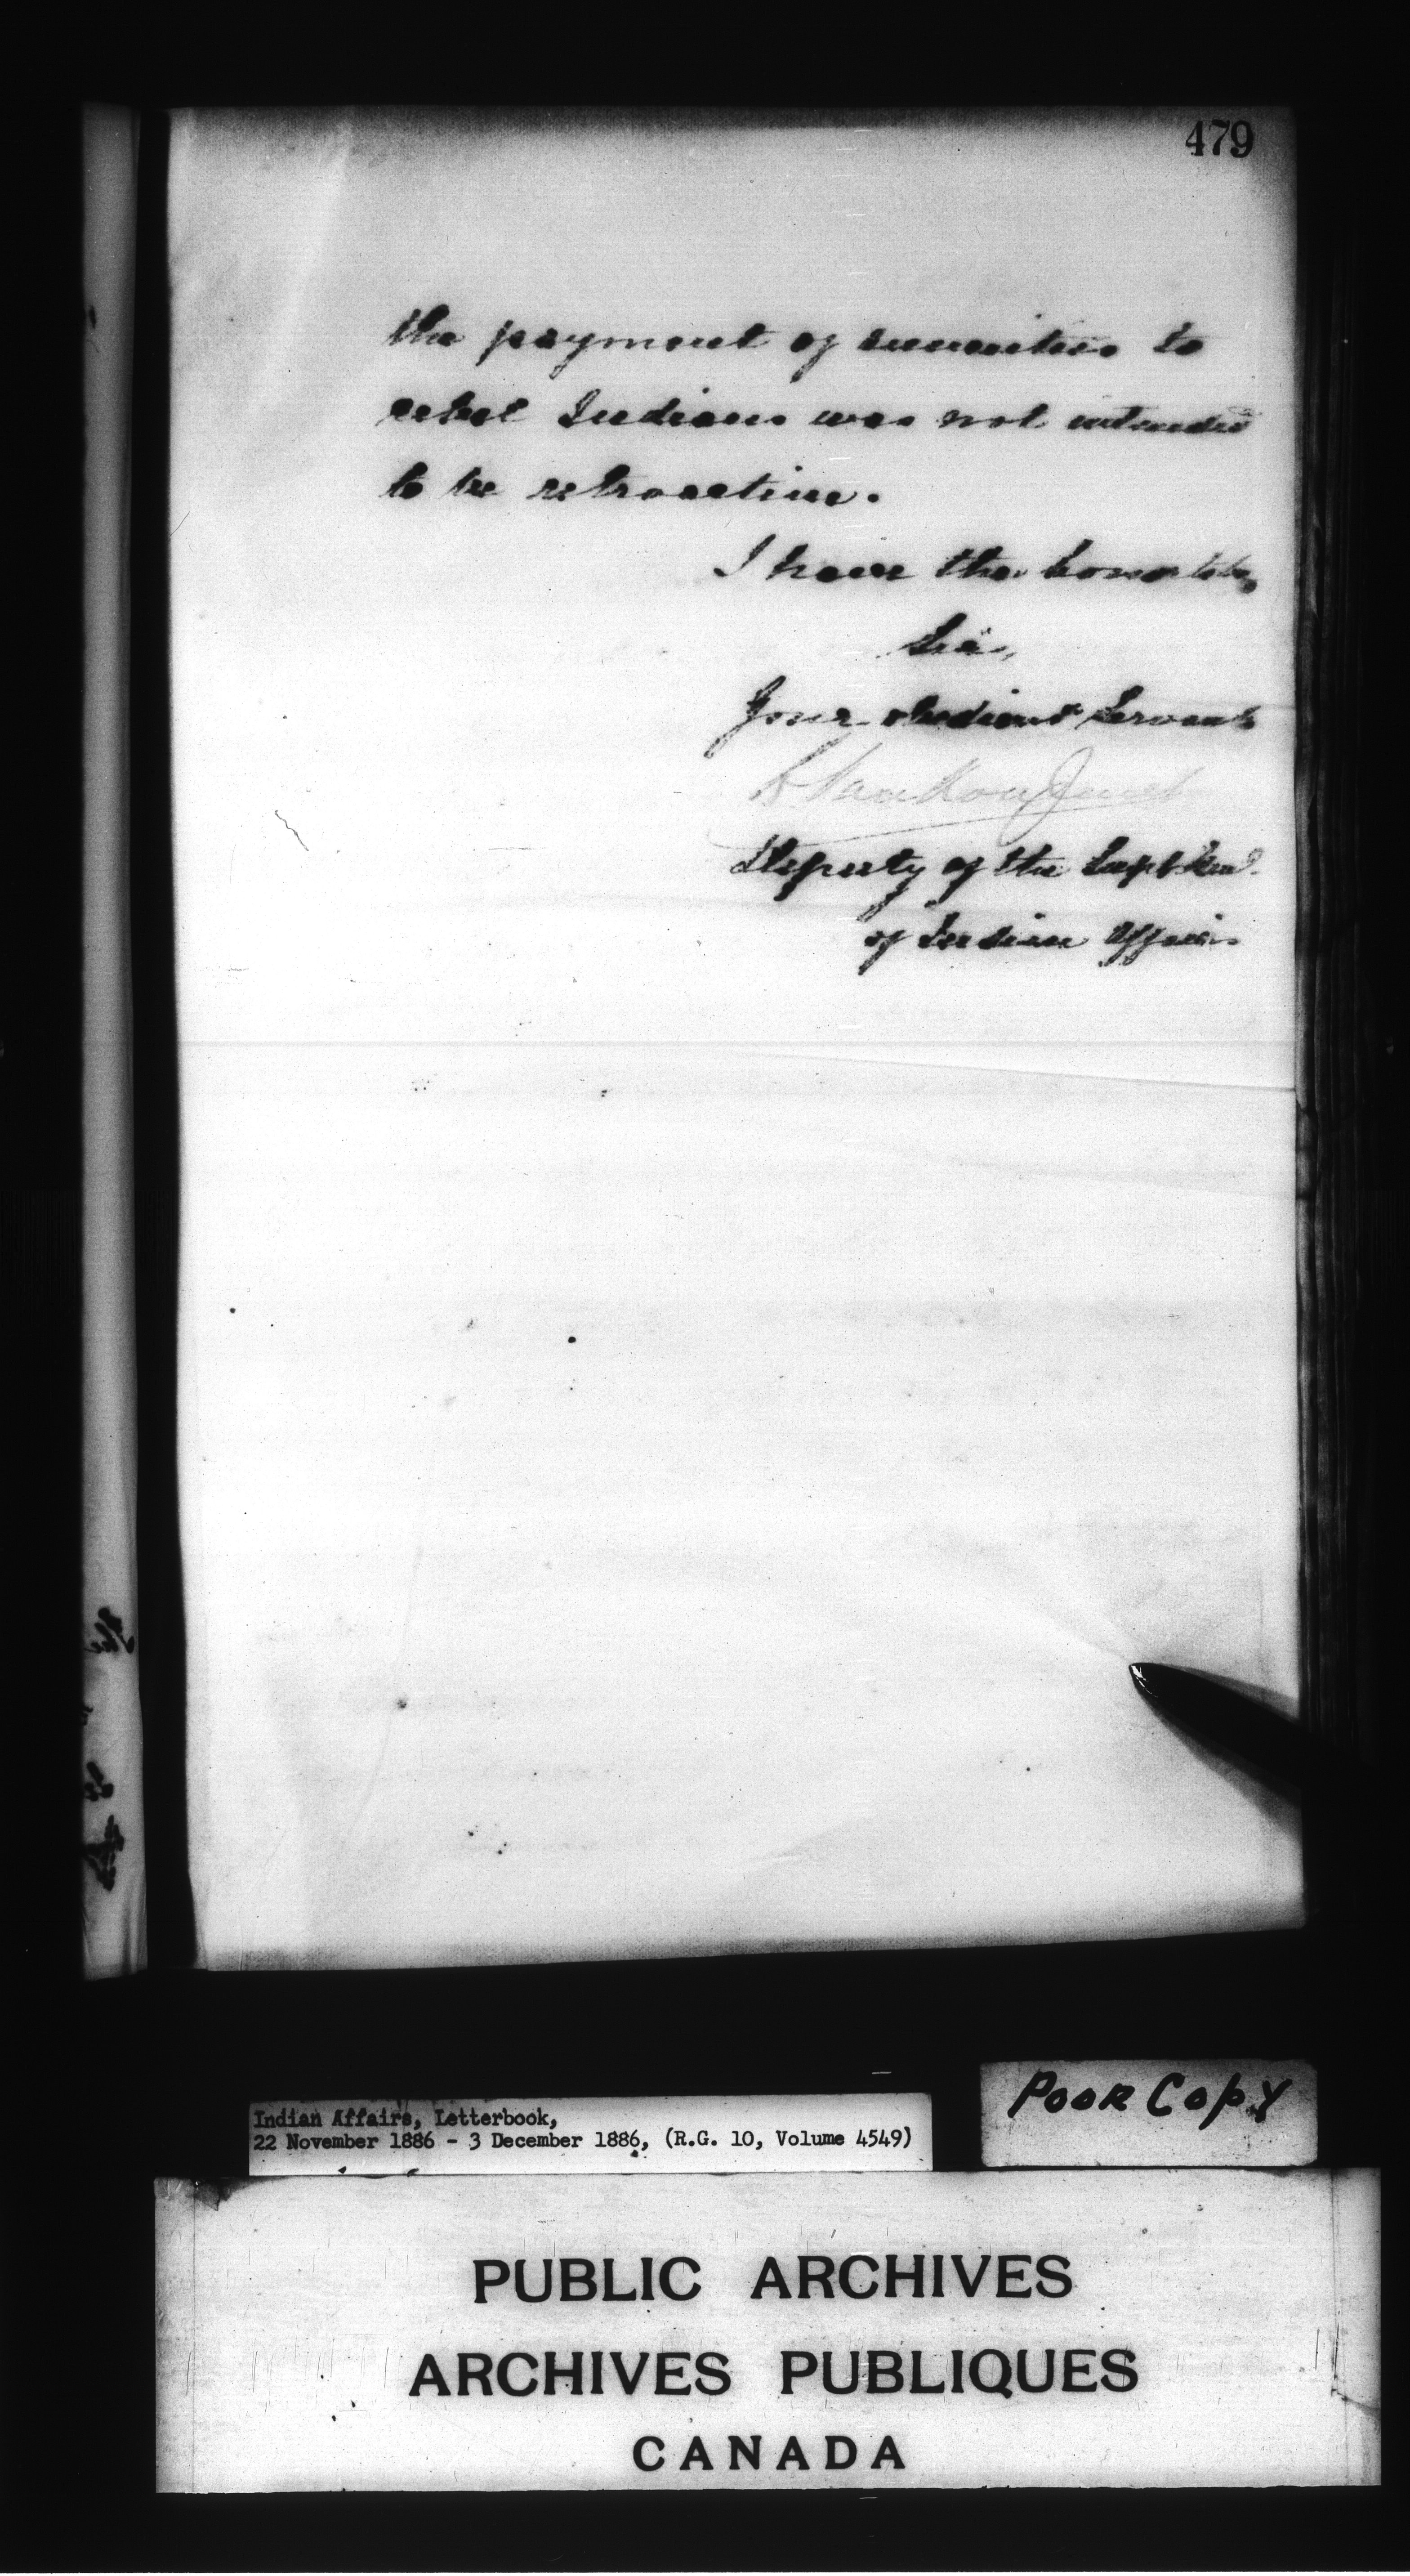 479
the payment of annuities to
rebel Indians was not intended
to be retroactive.
I have the honor to be,
Sir,
Your obedient Servant
L Vankoughnet
Deputy of the Supt. Genl.
of Indian Affairs
Indian Affairs, Letterbook,
22 November 1886 - 3 December 1886, (R.G. 10, Volume 4549)
POOR COPY
PUBLIC ARCHIVES
ARCHIVES PUBLIQUES
CANADA